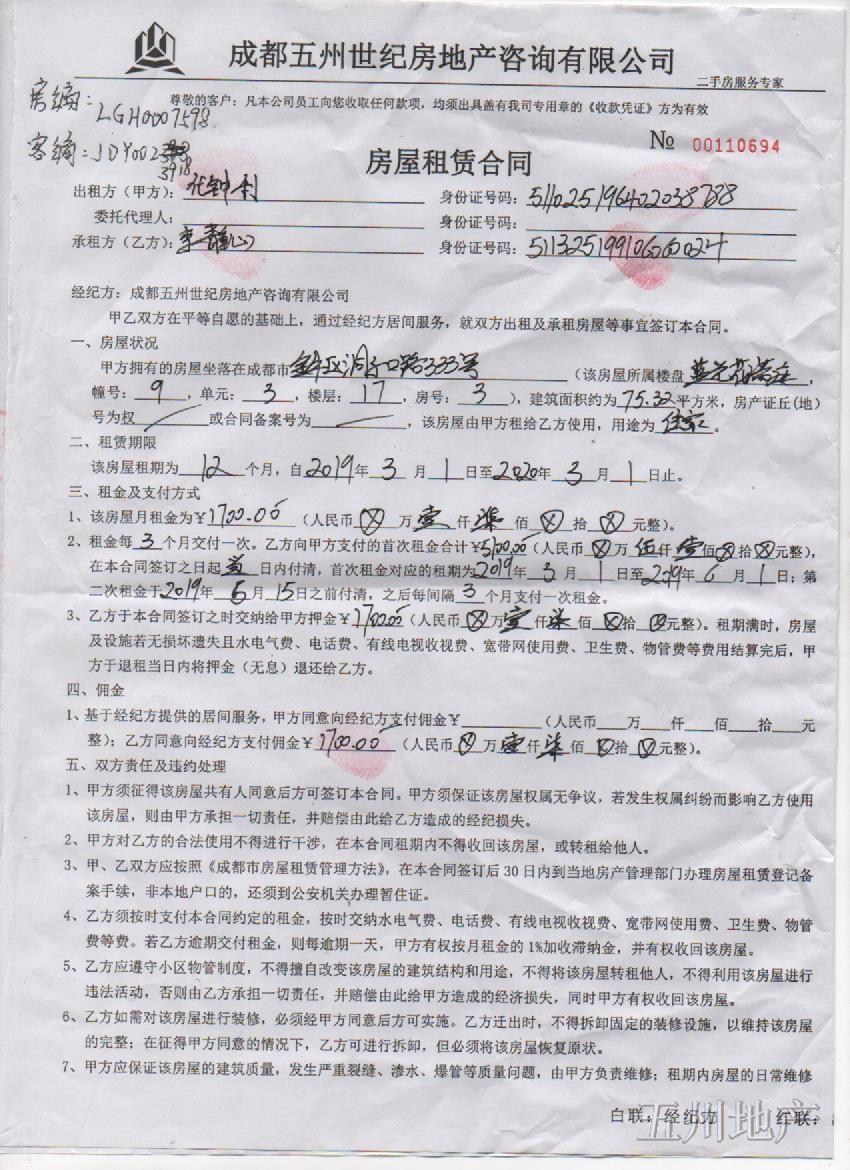 成都五州世纪房地产咨询有限公司
二手房服务专家
房编：LGH0007598
尊敬的客户：凡本公司员工向您收取任何款项，均须出具盖有我司专用章的《收款凭证》方为有效
客编：JDY002
3918
№ 00110694
房屋租赁合同
出租方（甲方）： 身份证号码：
委托代理人： 身份证号码：
承租方（乙方）：李静心 身份证号码：
经纪方：成都五州世纪房地产咨询有限公司
甲乙双方在平等自愿的基础上，通过经纪方居间服务，就双方出租及承租房屋等事宜签订本合同。
一、房屋状况
甲方拥有的房屋坐落在成都市金牛区洞子口路333号（该房屋所属楼盘，
幢号：9，单元：3，楼层：17，房号：3），建筑面积约为75.32平方米，房产证丘(地)
号为权 或合同备案号为 ，该房屋由甲方租给乙方使用，用途为住家。
二、租赁期限
该房屋租期为12个月，自2019年3月1日至2020年3月1日止。
三、租金及支付方式
1、该房屋月租金为￥1700.00（人民币⊗万壹仟柒佰⊗拾⊗元整）。
2、租金每3个月交付一次。乙方向甲方支付的首次租金合计￥5100.00（人民币⊗万伍仟壹佰⊗拾⊗元整），
在本合同签订之日起当日内付清，首次租金对应的租期为2019年3月1日至2019年6月1日；第
二次租金于2019年5月15日之前付清，之后每间隔3个月支付一次租金。
3、乙方于本合同签订之时交纳给甲方押金￥1700.00（人民币⊗万壹仟柒佰⊗拾⊗元整）。租期满时，房屋
及设施若无损坏遗失且水电气费、电话费、有线电视收视费、宽带网使用费、卫生费、物管费等费用结算完后，甲
方于退租当日内将押金（无息）退还给乙方。
四、佣金
1、基于经纪方提供的居间服务，甲方同意向经纪方支付佣金￥ （人民币 万 仟 佰 拾 元
整）；乙方同意向经纪方支付佣金￥1700.00（人民币⊗万壹仟柒佰⊗拾⊗元整）。
五、双方责任及违约处理
1、甲方须征得该房屋共有人同意后方可签订本合同。甲方须保证该房屋权属无争议，若发生权属纠纷而影响乙方使用
该房屋，则由甲方承担一切责任，并赔偿由此给乙方造成的经纪损失。
2、甲方对乙方的合法使用不得进行干涉，在本合同租期内不得收回该房屋，或转租给他人。
3、甲、乙双方应按照《成都市房屋租赁管理方法》，在本合同签订后30日内到当地房产管理部门办理房屋租赁登记备
案手续，非本地户口的，还须到公安机关办理暂住证。
4、乙方须按时支付本合同约定的租金，按时交纳水电气费、电话费、有线电视收视费、宽带网使用费、卫生费、物管
费等费。若乙方逾期交付租金，则每逾期一天，甲方有权按月租金的1%加收滞纳金，并有权收回该房屋。
5、乙方应遵守小区物管制度，不得擅自改变该房屋的建筑结构和用途，不得将该房屋转租他人，不得利用该房屋进行
违法活动，否则由乙方承担一切责任，并赔偿由此给甲方造成的经济损失，同时甲方有权收回该房屋。
6、乙方如需对该房屋进行装修，必须经甲方同意后方可实施。乙方迁出时，不得拆卸固定的装修设施，以维持该房屋
的完整；在征得甲方同意的情况下，乙方可进行拆卸，但必须将该房屋恢复原状。
7、甲方应保证该房屋的建筑质量，发生严重裂缝、渗水、爆管等质量问题，由甲方负责维修；租期内房屋的日常维修
白联：经纪方 红联：
五州地产